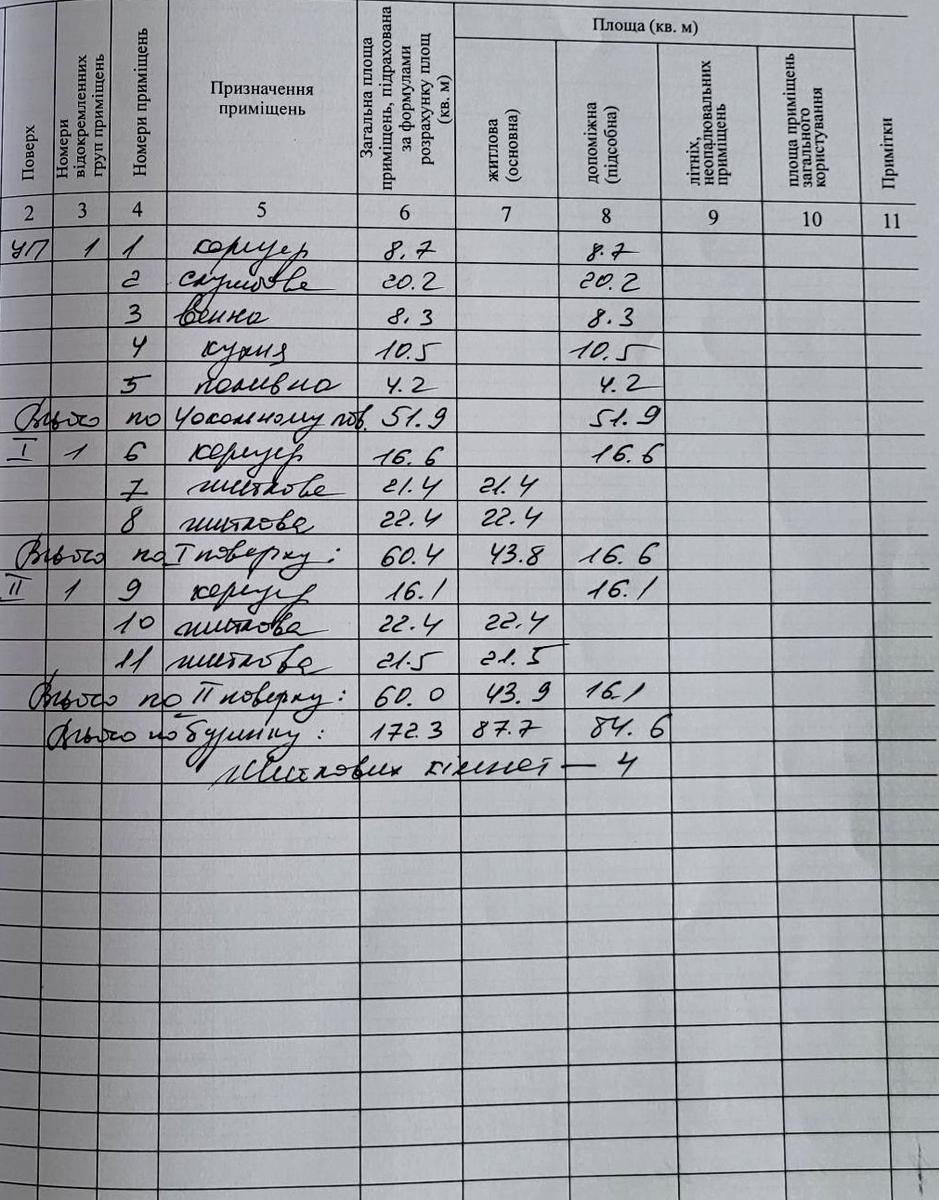 Поверх
Номери відокремленних груп приміщень
Номери приміщень
Призначення приміщень
Загальна площа приміщень, підрахована за формулами розрахунку площ (кв. м)
Площа (кв. м)
житлова (основна)
допоміжна (підсобна)
літніх, неопалювальних приміщень
площа приміщень загального користування
Примітки
2 3 4 5 6 7 8 9 10 11
ЦП 1 1 коридор 8.7 8.7
2 службове 20.2 20.2
3 ванна 8.3 8.3
4 кухня 10.5 10.5
5 паливна 4.2 4.2
Всього по цокольному пов. 51.9 51.9
I 1 6 коридор 16.6 16.6
7 житлова 21.4 21.4
8 житлова 22.4 22.4
Всього по I поверху: 60.4 43.8 16.6
II 1 9 коридор 16.1 16.1
10 житлова 22.4 22.4
11 житлова 21.5 21.5
Всього по II поверху: 60.0 43.9 16.1
Всього по будинку: 172.3 87.7 84.6
Житлових кімнат — 4